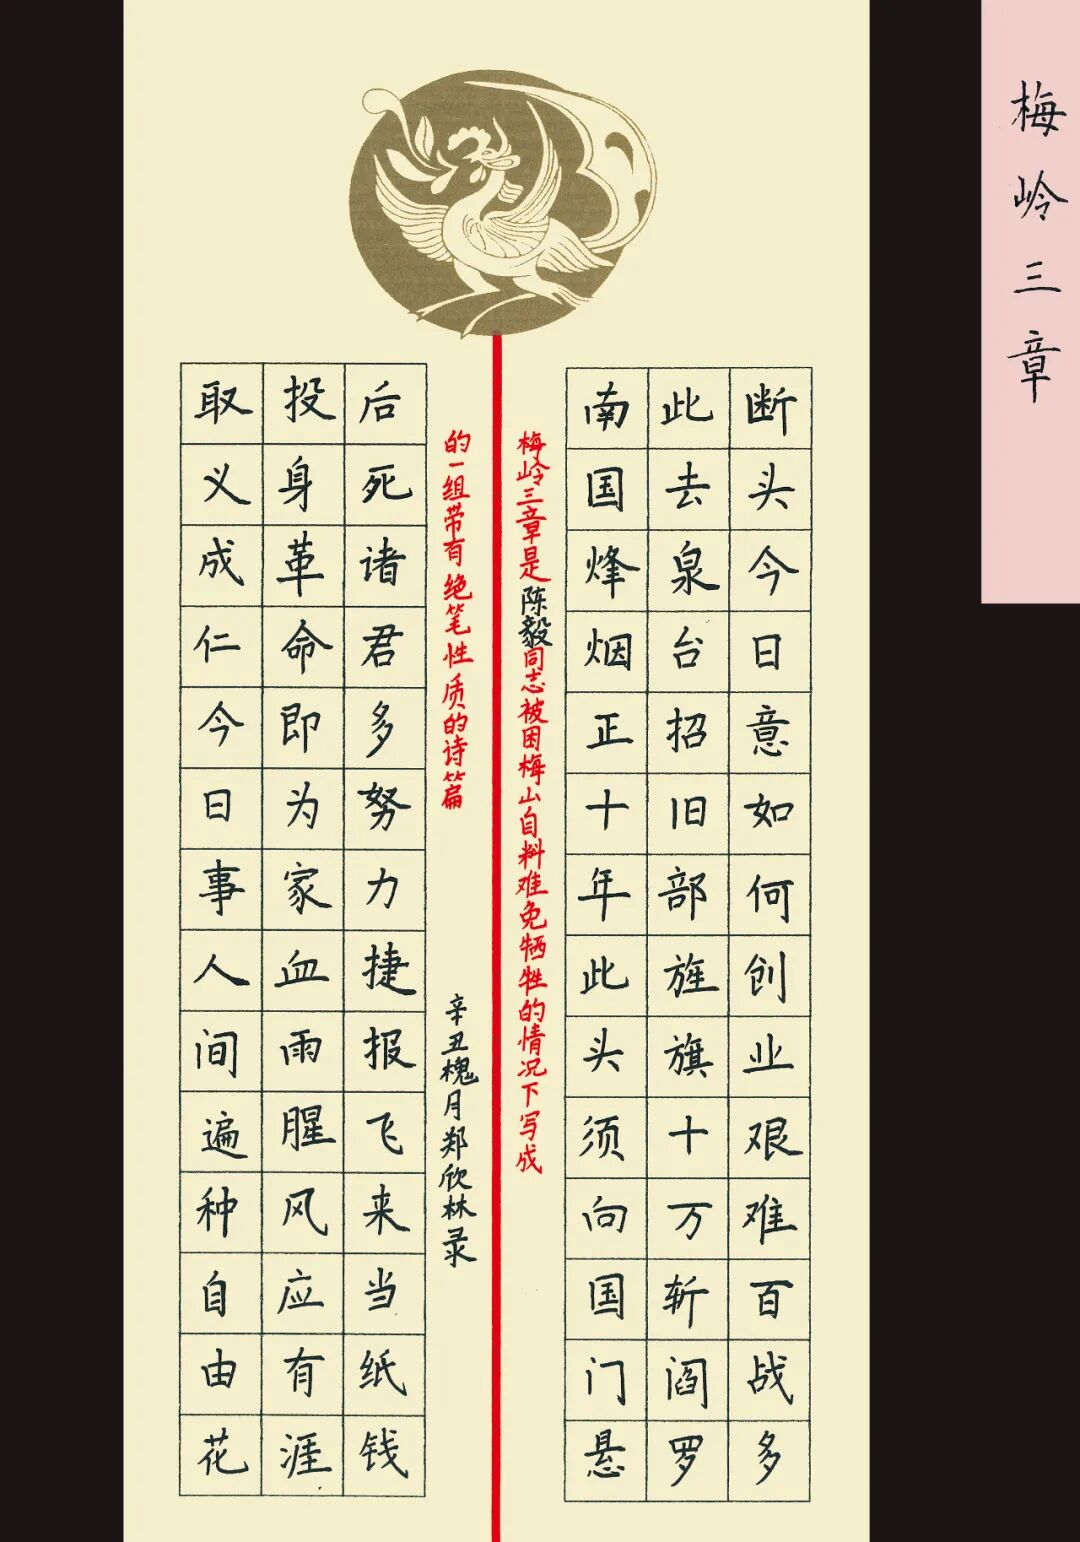 梅岭三章
断头今日意如何创业艰难百战多
此去泉台招旧部旌旗十万斩阎罗
南国烽烟正十年此头须向国门悬
梅岭三章是陈毅同志被困梅山自料难免牺牲的情况下写成
的一组带有绝笔性质的诗篇
辛丑槐月郑欣林录
后死诸君多努力捷报飞来当纸钱
投身革命即为家血雨腥风应有涯
取义成仁今日事人间遍种自由花